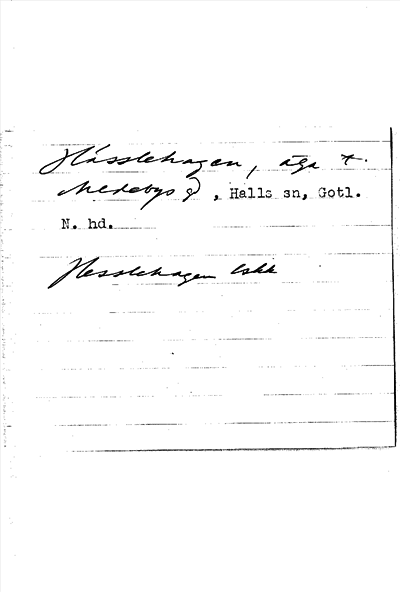 Hässlehagen, äga t.
Medebys gd, Halls sn, Gotl.
N. hd.
Hesslehagen lskk